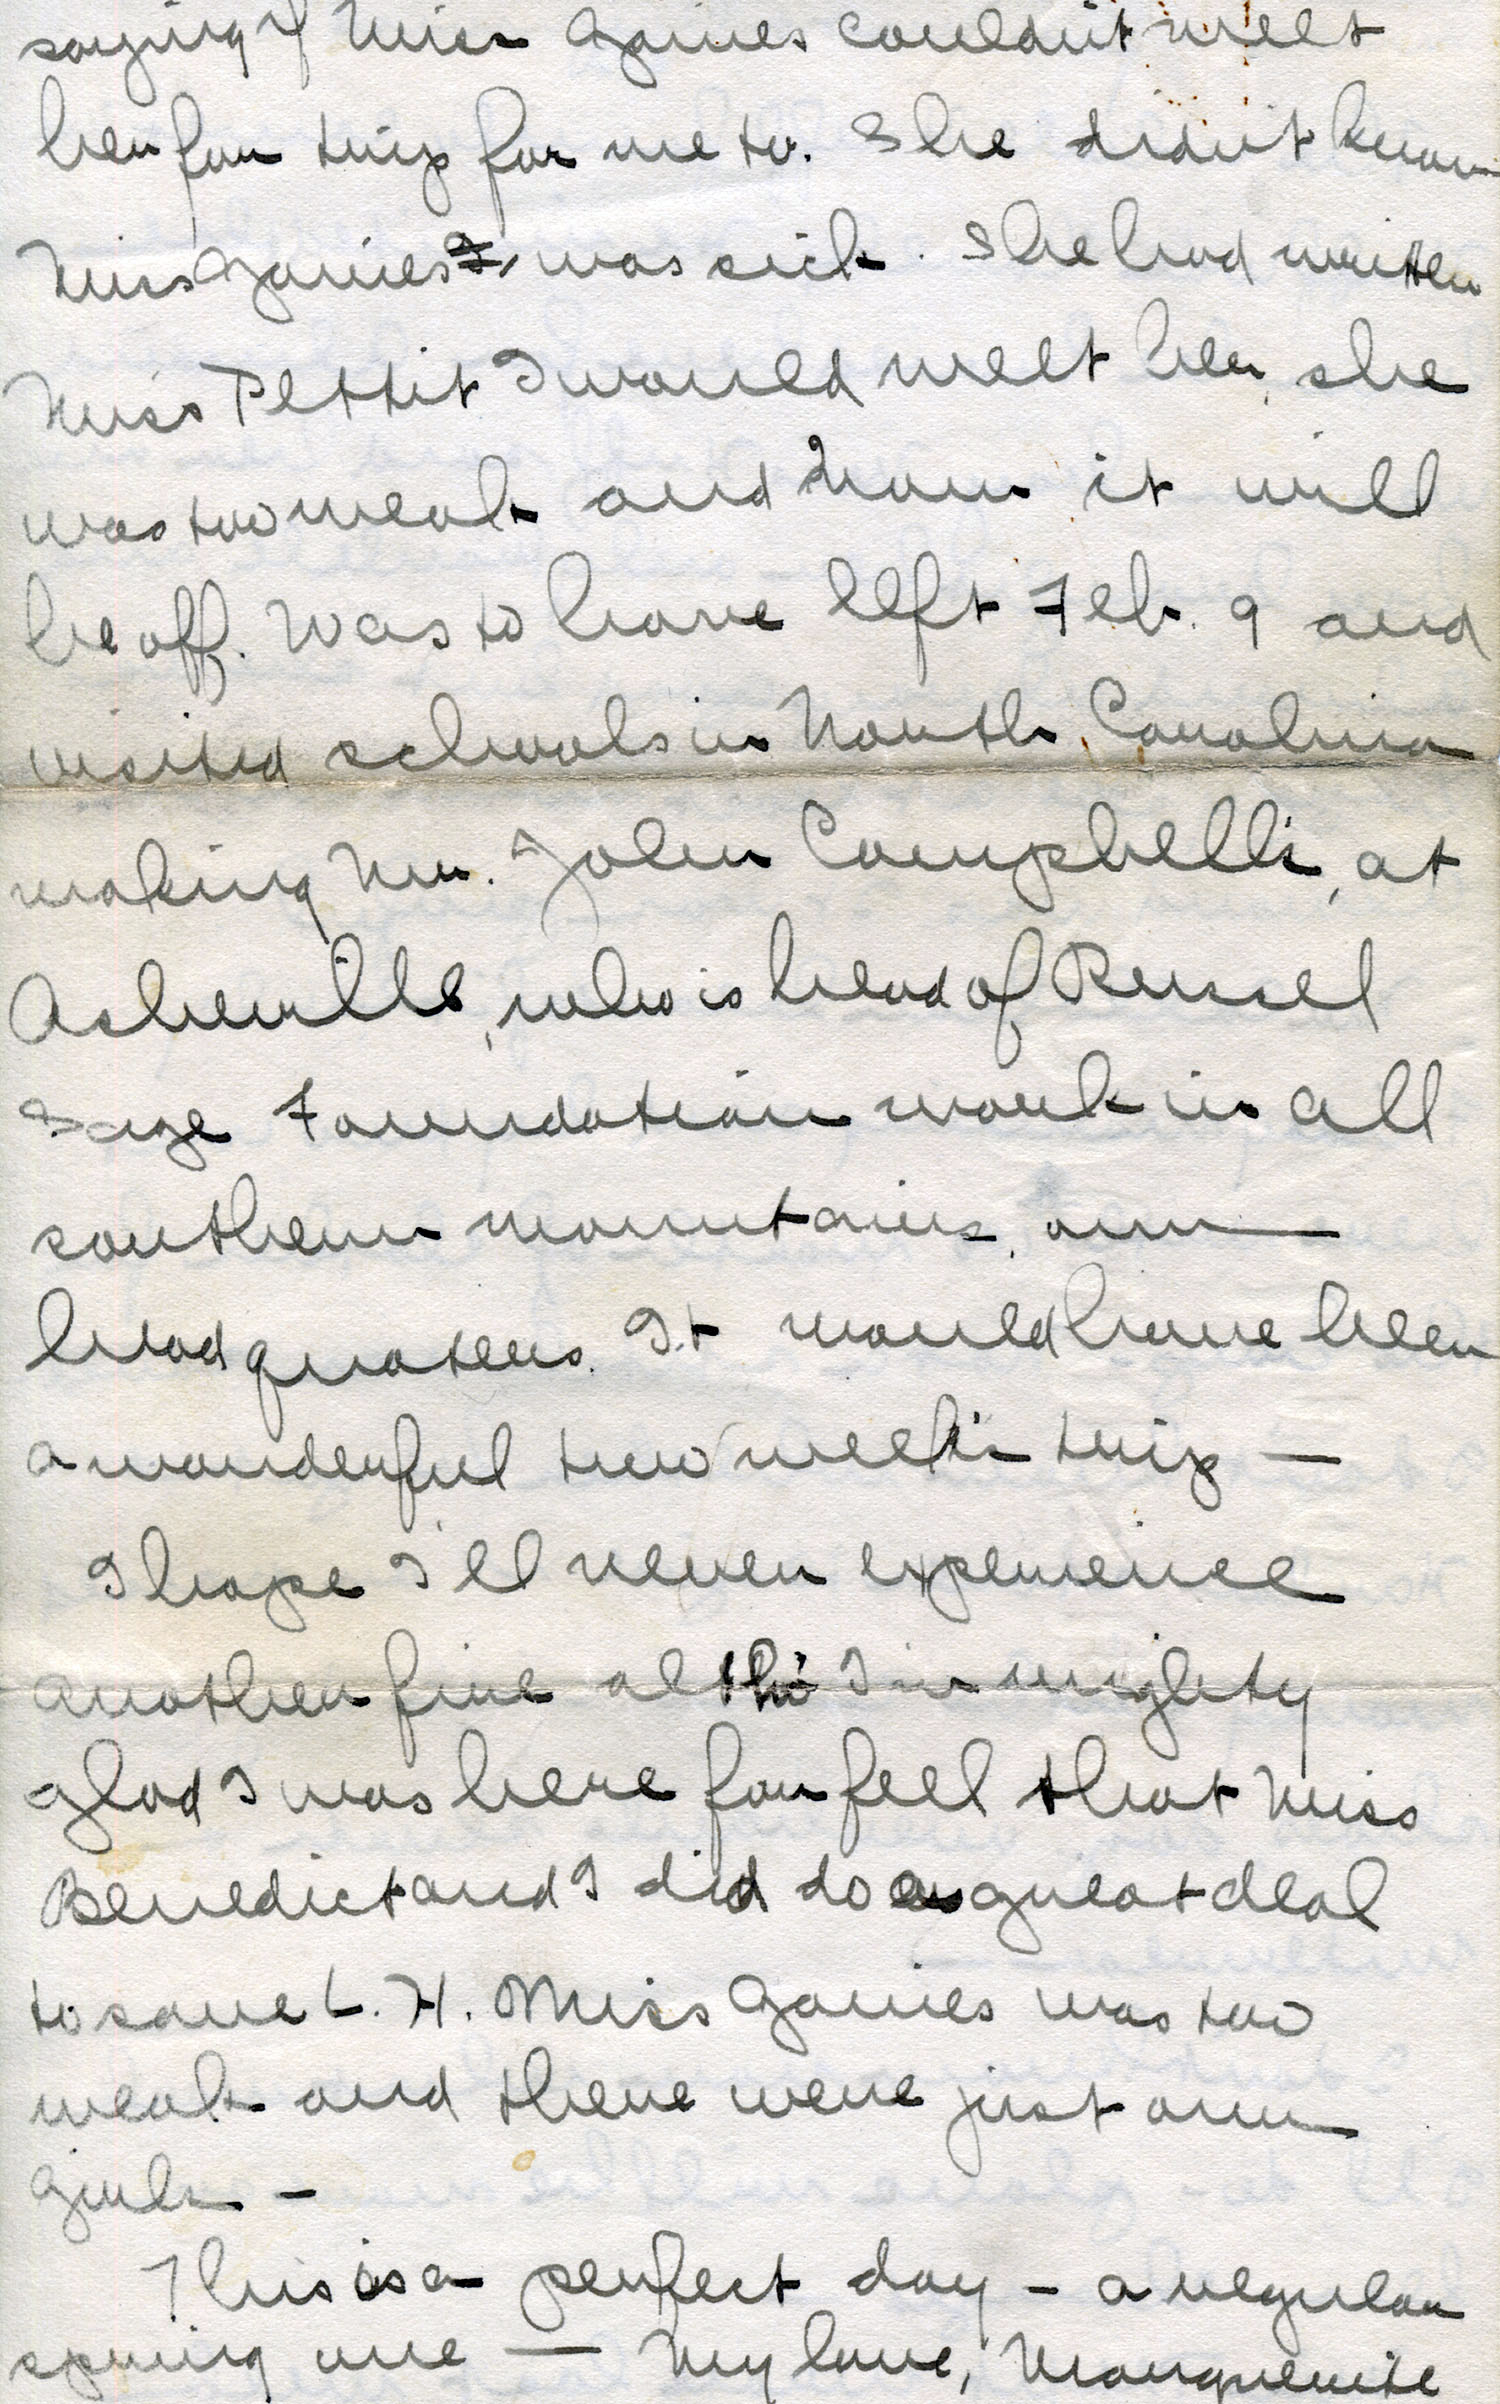 saying if Miss Gaines couldn't meet
her for trip for me to. She didn't know
Miss Gaines was sick. She had written
Miss Pettit I would meet her, she
was too weak and now it will
be off. Was to have left Feb. 9 and
visited schools in North Carolina
making Mr. John Campbell's, at
Asheville, who is head of Russel
Sage Foundation work in all
southern mountains, our
headquaters. It would have been
a wonderful two week's trip —
I hope I'll never experience
another fire altho' I'm mighty
glad I was here for feel that Miss
Benedict and I did do a great deal
to save L. H. Miss Gaines was too
weak and there were just our
girls —
This is a perfect day — a regular
spring one — My love, Marguerite